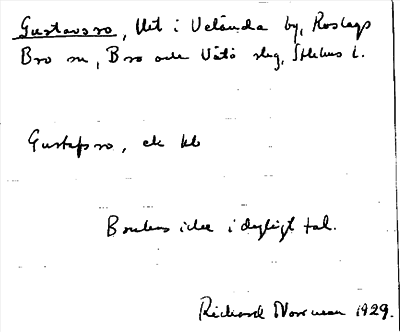 Gustavsro, lht i Velånda by, Roslags
Bro sn, Bro och Vätö slg, Sthlms l.
Gustafsro, ek kb
Brukas icke i dagligt tal.
Richard Norrman 1929.